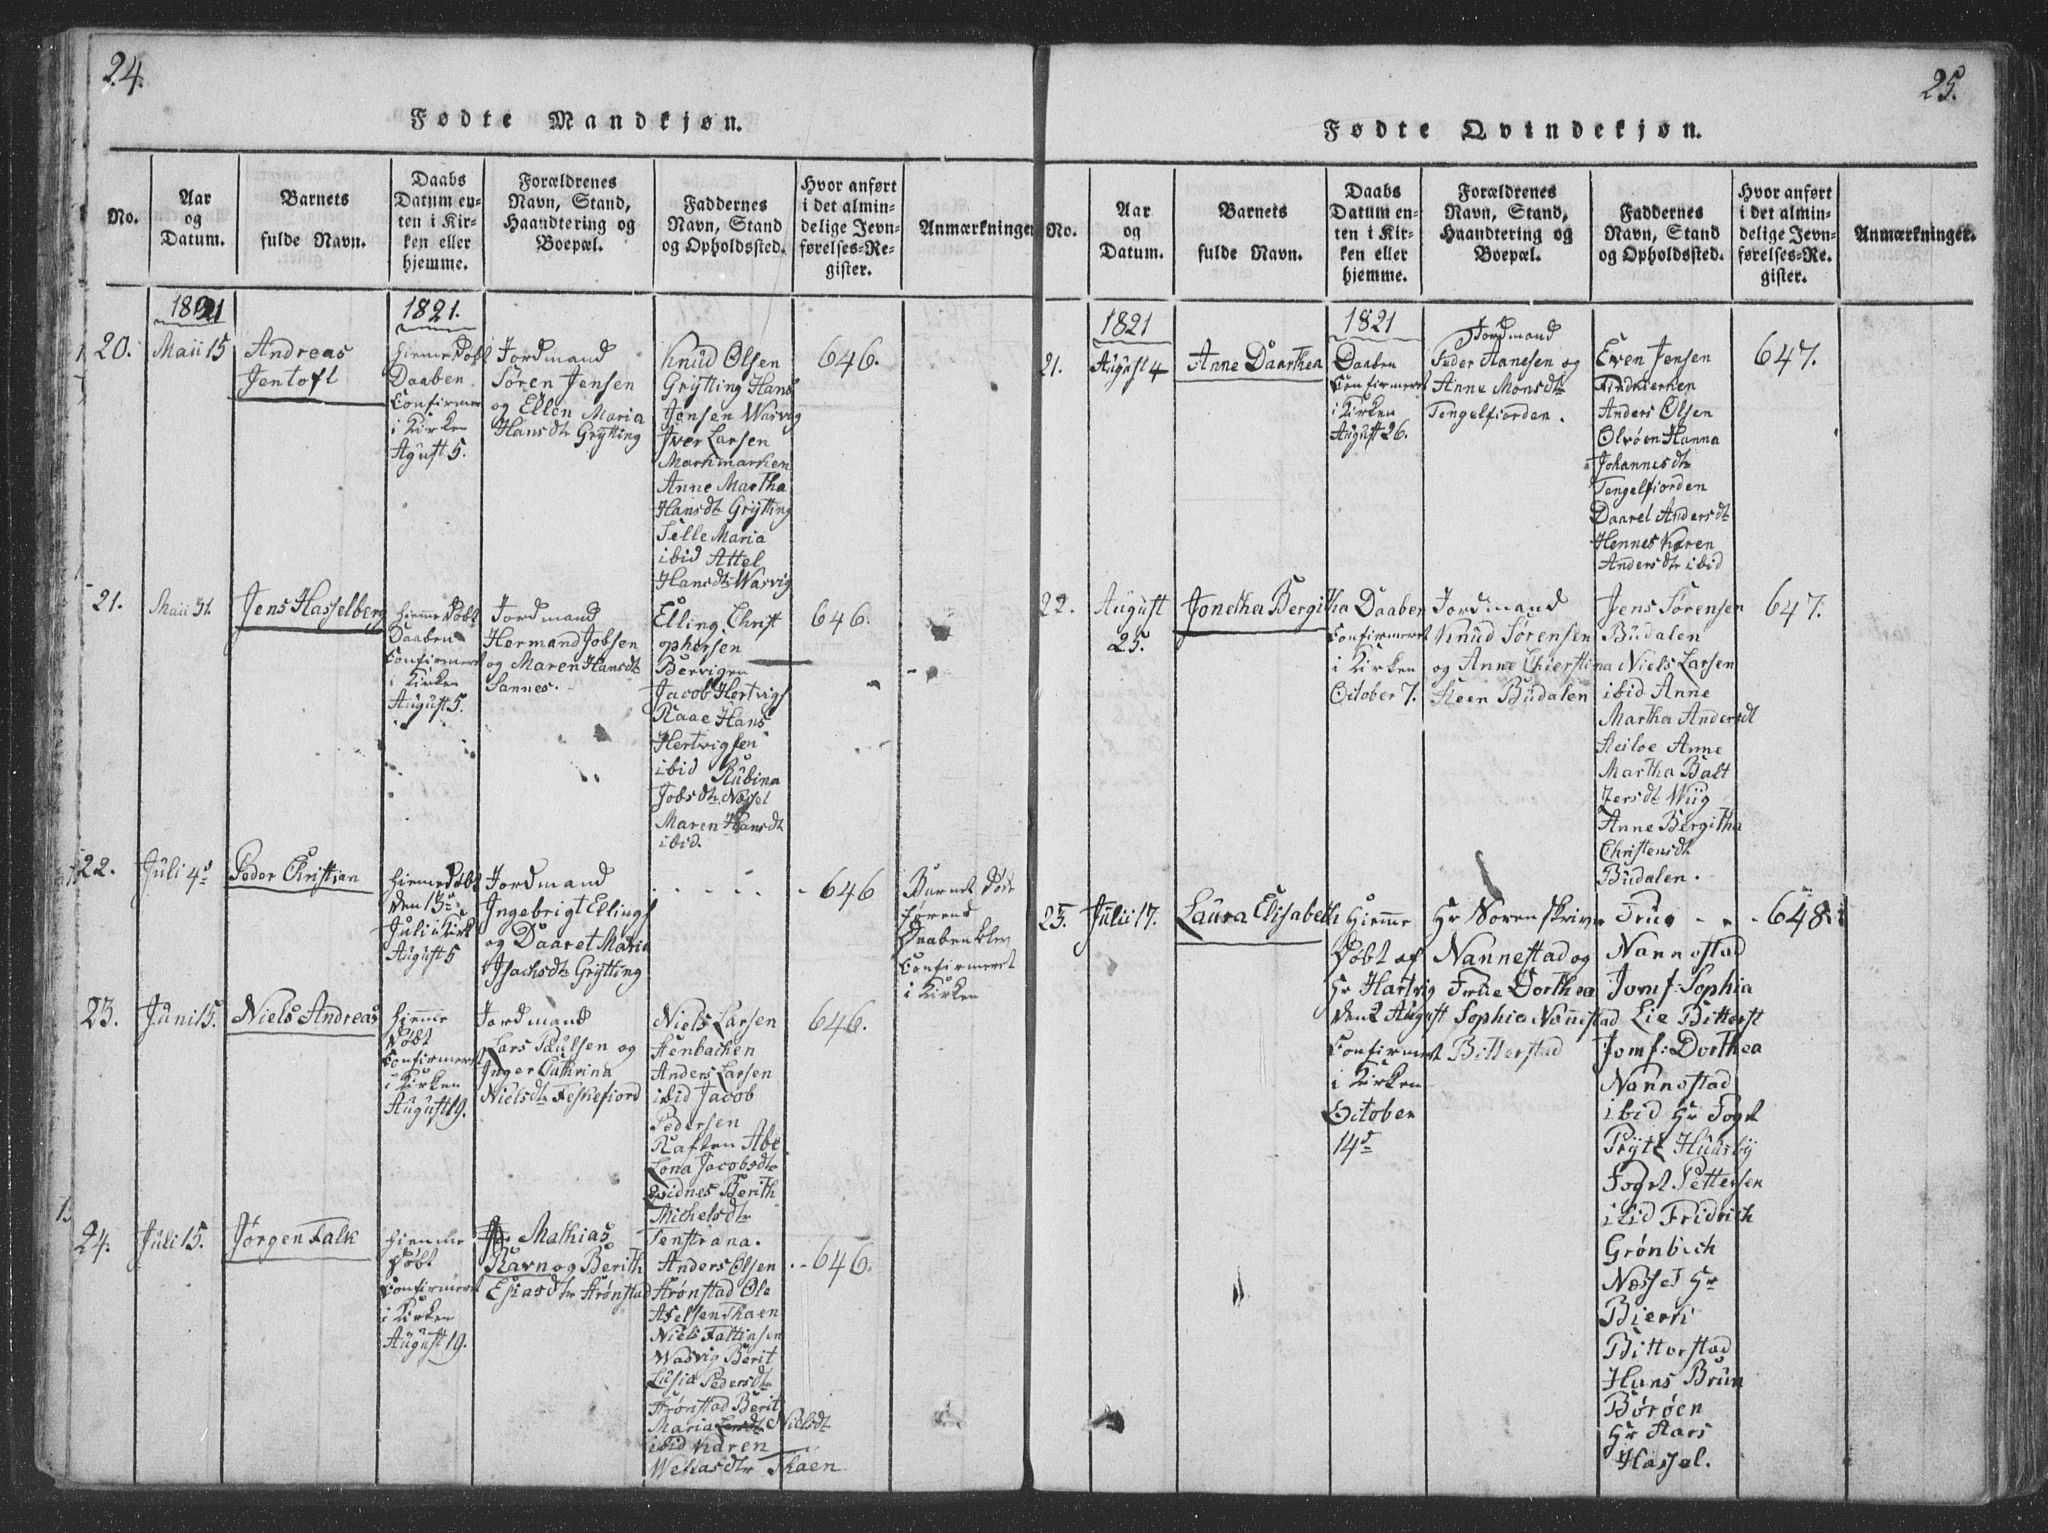 24.
Fødte Mandkjøn.
No.
Aar
og
Datum.
Barnets
fulde Navn.
Daabs
Datum en-
ten i Kir-
ken eller
hjemme.
Forældrenes
Navn, Stand,
Haandtering og
Boepæl.
Faddernes
Navn, Stand
og Opholdssted.
Hvor anført
i det almin-
delige Jevn-
førelses-Re-
gister.
Anmærkninger
1821
1821.
20.
Maii 15
Andreas
Jentoft
Hieme Døbt
Daaben
Confirmer
i Kirken
Agust 5.
Jordmand
Søren Jensen
og Ellen Maria
Hansdtr Grÿtting
Knud Olsen
Grÿtting Hans
Jensen Wasvig
Iver Larsen
Markmarken
Anne Martha
Hansdt Grÿtting
Sille Maria
ibid Attel
Hansdtr Wasvig
646.
21.
Maii 31.
Jens Hasselberg
hieme Døbt
Daaben
Confirmeret
i Kirken
August 5.
Jordmand
Hermand Jobsen
og Maren Hansdt
Sannes.
Elling Christ
ophersen
Bervigen
Jacob Hertvigs
Raae Hans
Hertvigsen
ibid Rubina
Jobsdtr Næssel
Maren Hansdt
ibid.
646.
22.
Juli 4de
Peder Christian
hieme Døbt
den 13de
Juli i Kirk
August 5
Jordmand
Ingebrigt Ellings
og Daaret Maria
Isachsdtr Grÿtting
646
Barnet Døde
førend
Daaben blev
Confirmeret
i Kirken
23.
Juni 15.
Niels Andreas
hjemme
Døbt
Confirmeret
i Kirken
August 19.
Jordmand
Lars Paulsen og
Inger Cathrina
Nielsdtr Feskefiord
Niels Larsen
Stenbacken
Anders Larsen
ibid Jacob
Pedersen
Raften Abe
Lona Jacobsdtr
Eidnes Berith
Michelsdtr
Fenstrana.
646.
24.
Juli 15.
Jørgen Falk
hiemme
Døbt
Confirmeret
i Kirken
August 19.
Mathias
Ravn og Berith
Esiasdtr Strønstad
Anders Olsen
Strønstad Ole
Axelsen Thaen
Niels Fattinsen
Wasvig Berit
Lusia Pedersdtr
Strønstad Berit
Maria Nielsdt
ibid Karen
Thaen
646.
25.
Fødte Qvindekjøn.
No.
Aar
og
Datum.
Barnets
fulde Navn.
Daabs
Datum en-
ten i Kir-
ken eller
hjemme.
Forældrenes
Navn, Stand,
Haandtering og
Boepæl.
Faddernes
Navn, Stand
og Opholdssted.
Hvor anført
i det almin-
delige Jevn-
førelses-Re-
gister.
Anmærkninger.
1821
1821
21.
August 4
Anne Daarthea
Daaben
Confirmeret
i Kirken
August 26.
Jordmand
Peder Hansen og
Anne Monsdtr
Tengelfiorden.
Even Jensen
Anders Olsen
Olvøen Hanna
Johannesdtr
Tengelfiorden
Daarel Andersdt
Hennes Karen
Andersdtr ibid
647.
22.
August
25.
Jonetha Bergitha
Daaben
Confirmeret
i Kirken
October 7.
Jordmand
Knud Sørensen
og Anne Chierstina
Steen Budalen
Jens Sørensen
Budalen
Niels Larsen
ibid Anne
Martha Andersdt
Heiloe Anne
Martha Balt
zersdtr Wiig
Anne Bergitha
Christensdtr
Budalen.
647.
23.
Julii 17.
Laura Elisabeth
Hiemme
Døbt af
Hr Hartvig
den 2 August
Confirmeret
i Kirken
October
14de
Hr Sorenskriv.
Nannestad og
Frue Dorthea
Sophia Nannestad
Bitterstad
Frue
Nannestad
Jomf: Sophia
Lie Bitterst
Jomf: Dorthea
Nannestad
ibid Hr Fogt
Prÿtz Hunsby
Fogt Pettersen
ibid Fridrich
Grønbech
Næsset Hr
Bierk
Bitterstad
Hans Brun
Børøen
Hr Aars
Hassel.
648